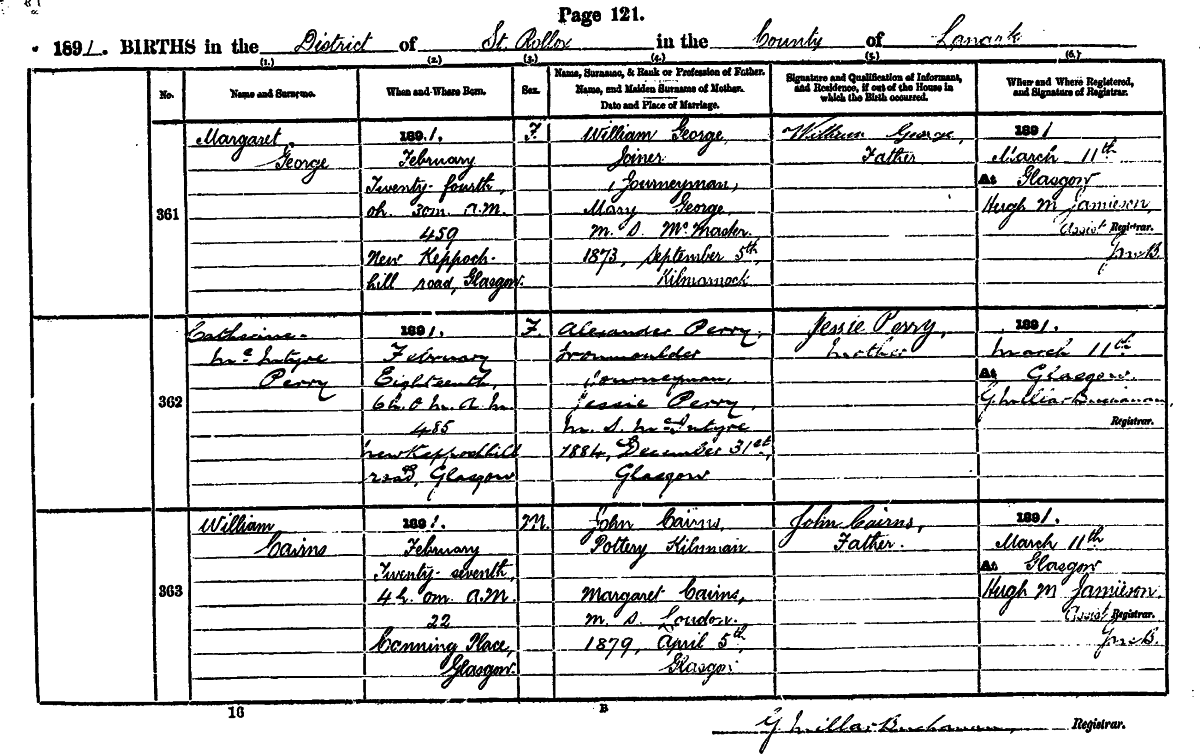 Page 121.
1891. BIRTHS in the District of St. Rollox in the County of Lanark
(1.) (2.) (3.) (4.) (5.) (6.)
No.
Name and Surname.
When and Where Born.
Sex.
Name, Surname, & Rank or Profession of Father.
Name, and Maiden Surname of Mother.
Date and Place of Marriage.
Signature and Qualification of Informant,
and Residence, if out of the House in
which the Birth occurred.
When and Where Registered,
and Signature of Registrar.
361
Margaret
George
1891.
February
Twenty-fourth,
0h. 30m. A.M.
459
New Keppoch-
hill road, Glasgow.
F.
William George,
Joiner
(Journeyman)
Mary George
M. S. McMaster.
1873, September 5th,
Kilmarnock
William George,
Father
1891
March 11th
At Glasgow
Hugh M Jamieson,
Assist Registrar.
GMB.
362
Catherine
McIntyre
Perry
1891.
February
Eighteenth,
6h. 0m. A.M.
485
New Keppochhill
road, Glasgow
F.
Alexander Perry,
Ironmoulder
Journeyman,
Jessie Perry,
M. S. McIntyre
1884, December 31st,
Glasgow
Jessie Perry,
Mother
1891.
March 11th
At Glasgow.
G. Millar Buchanan,
Registrar.
363
William
Cairns
1891.
February
Twenty-seventh,
4h. 0m. A.M.
22
Canning Place,
Glasgow.
M.
John Cairns,
Pottery Kilnman
Margaret Cairns,
M. S. Loudon.
1879, April 5th,
Glasgow
John Cairns,
Father.
1891.
March 11th
At Glasgow
Hugh M Jamieson.
Assist Registrar.
GMB.
16
B
G. Millar Buchanan, Registrar.